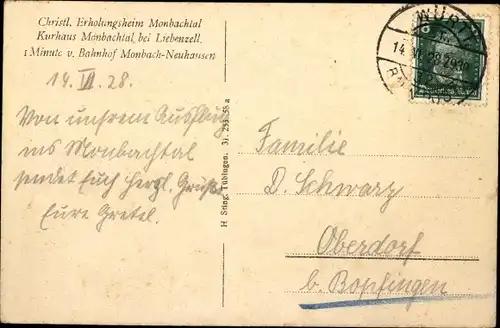 Christl. Erholungsheim Monbachtal
Kurhaus Monbachtal bei Liebenzell
1 Minute v. Bahnhof Monbach-Neuhausen
14. VI. 28.
Von unserem Ausflug
ins Monbachtal
sendet Euch herzl. Grüße
Eure Gretel.
H. Sting, Tübingen.
WÜRTT
14. VI. 28
Familie
D. Schwarz
Oberdorf
b. Bopfingen